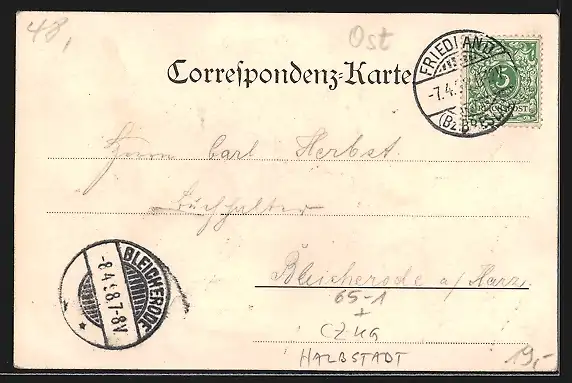 48,
Ost
Correspondenz-Karte
FRIEDLAND
-7.4.
(BZ. BRESLAU)
5
REICHSPOST
Herrn Carl Herbst
Buchhalter
Bleicherode a/Harz
BLEICHERODE
-8.4.98.7-8V.
65-1
+
CZUG
HALBSTADT
19,-